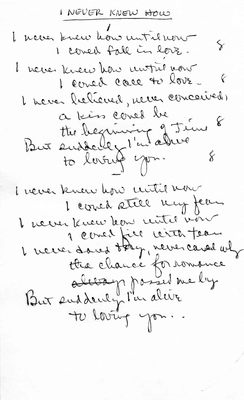 I NEVER KNEW HOW
I never knew how until now
I could fall in love. 8
I never knew how until now
I could care to love. 8
I never believed, never conceived,
a kiss could be
the beginning of Time 8
But suddenly I'm alive
to loving you. 8
I never knew how until now
I could still my fear
I never knew how until now
I could fill with tears
I never dared try, never cared why
the chance for romance
always passed me by
But suddenly I'm alive
to loving you...